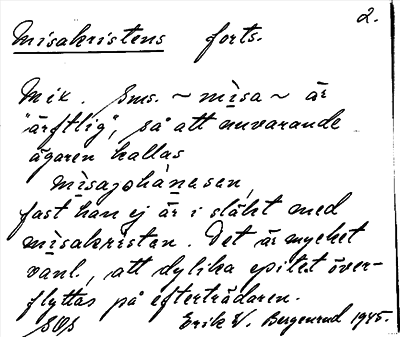 2.
Misakristens forts.
Mik. Sms. ~ mìsa ~ är
"ärftlig", så att nuvarande
ägaren kallas
mìsajohànasan,
fast han ej är i släkt med
mìsakristan. Det är mycket
vanl., att dylika epitet över-
flyttas på efterträdaren.
Erik W. Bergenrud 1945.